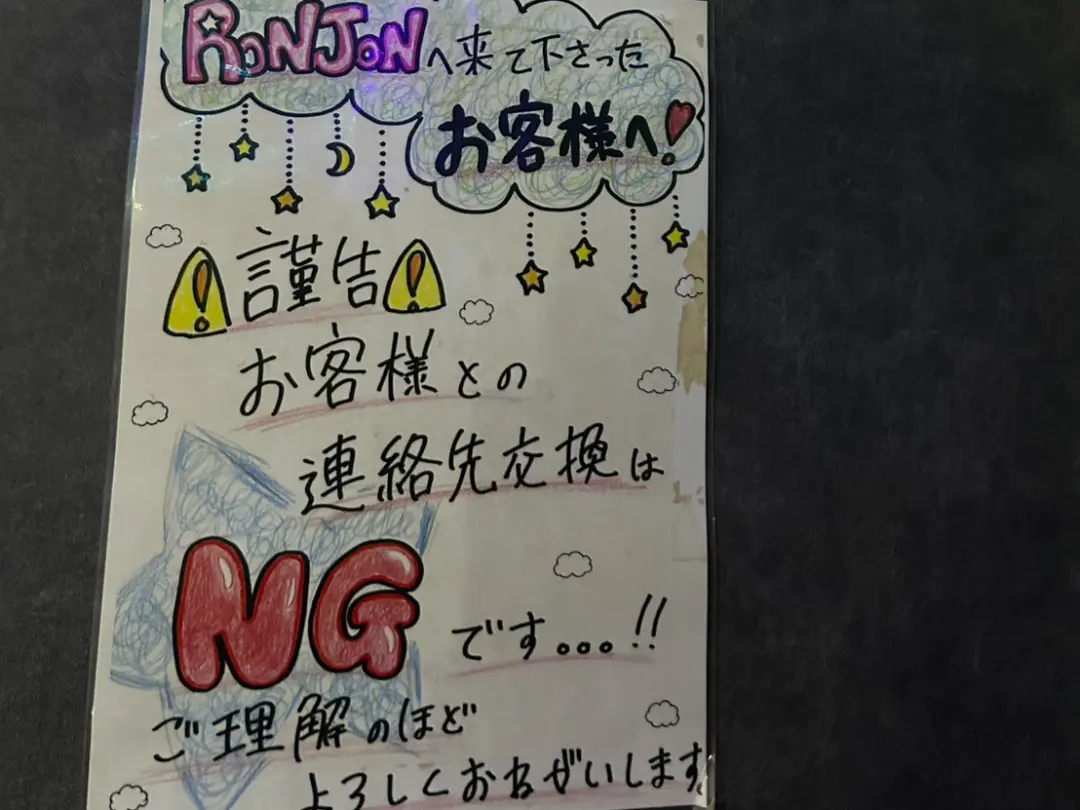 RONJONへ来て下さった
お客様へ!
謹告
お客様との
連絡先交換は
NGです...!!
ご理解のほど
よろしくおねがいします